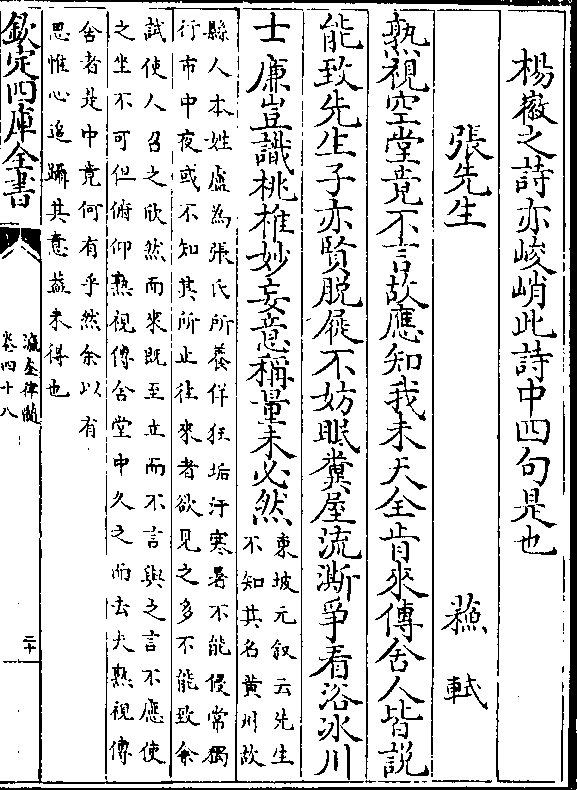 楊徽之詩亦峻峭此詩中四句是也
張先生　蘇軾
熟視空堂竟不言故應知我未天全肯來傳舍人皆説
能致先生子亦賢脱屣不妨眠糞屋流澌爭看浴冰川
士廉豈識桃椎妙妄意稱量未必然
東坡元叙云先生
不知其名黄州故
縣人本姓盧為張氏所養佯狂垢汙寒暑不能侵常獨
行市中夜或不知其所止往來者欲見之多不能致余
試使人召之欣然而來既至立而不言與之言不應使
之坐不可但俯仰熟視傳舍堂中久之而去夫熟視傳
舍者是中竟何有乎然余以有
思惟心追躡其意蓋未得也
欽定四庫全書
瀛奎律髓
卷四十八
二十